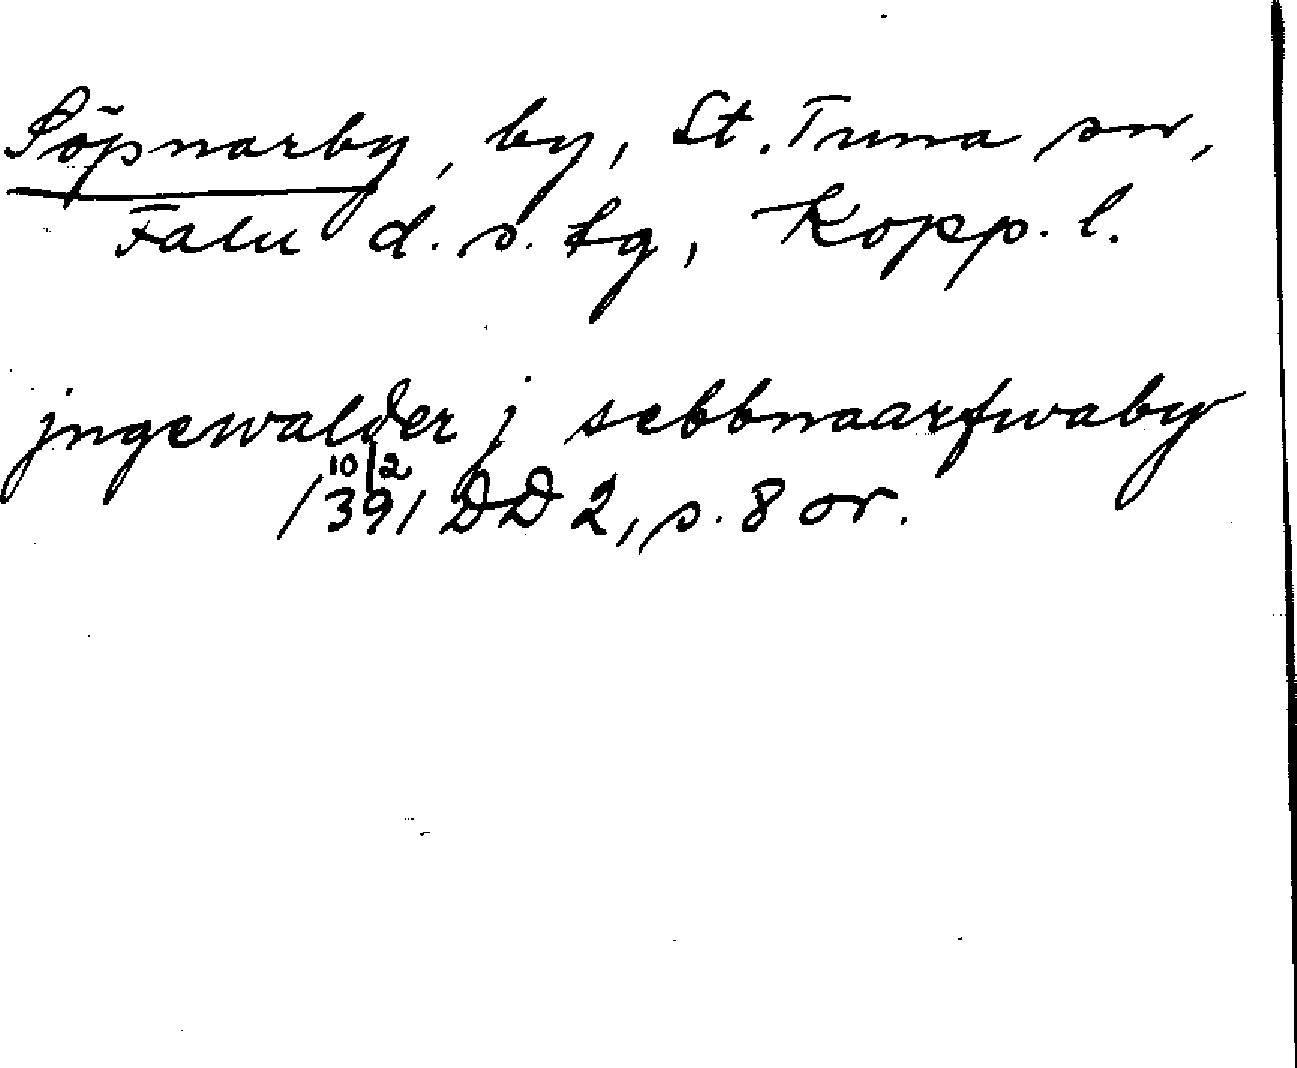 Söpnarby, by, St. Tuna sn,
Falu d. s. tg, Kopp. l.
jngewalder j sebbnaarfwaby
10/2 1391 DD 2, s. 8 or.